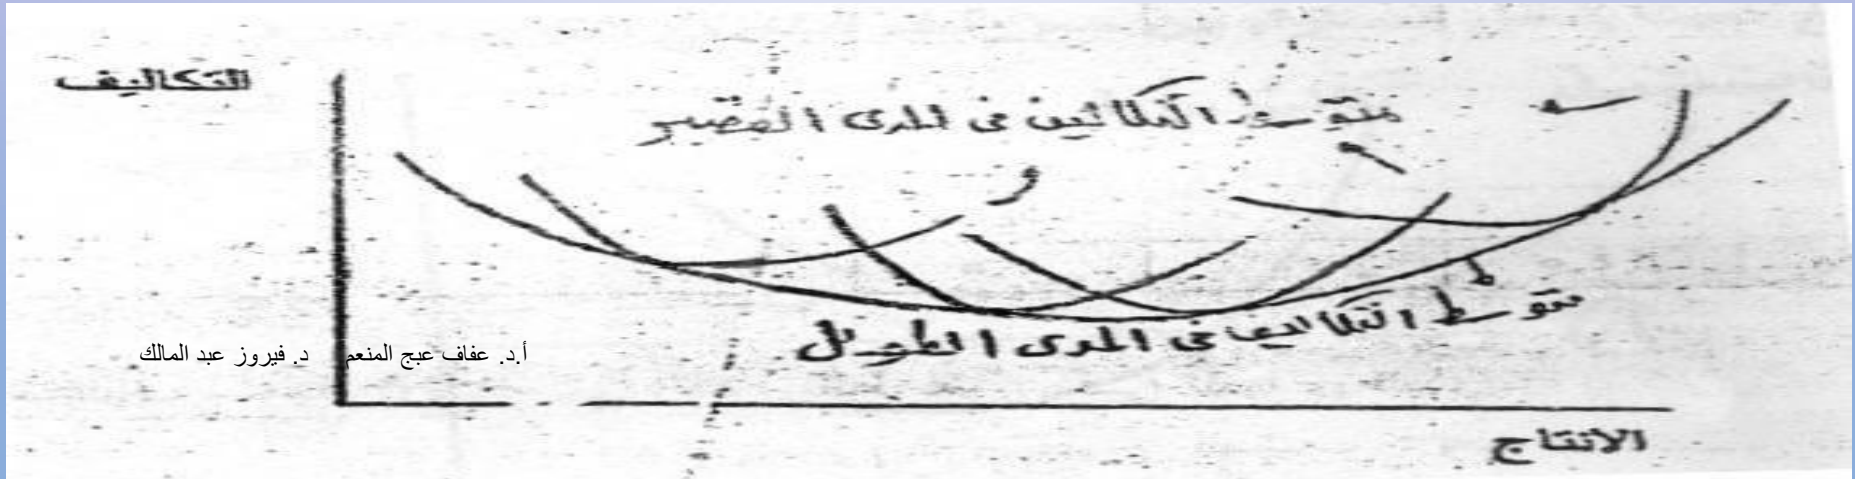 التكاليف
متوسط التكاليف فى المدى القصير
متوسط التكاليف فى المدى الطويل
أ.د. عفاف عبج المنعم د. فيروز عبد المالك
الانتاج